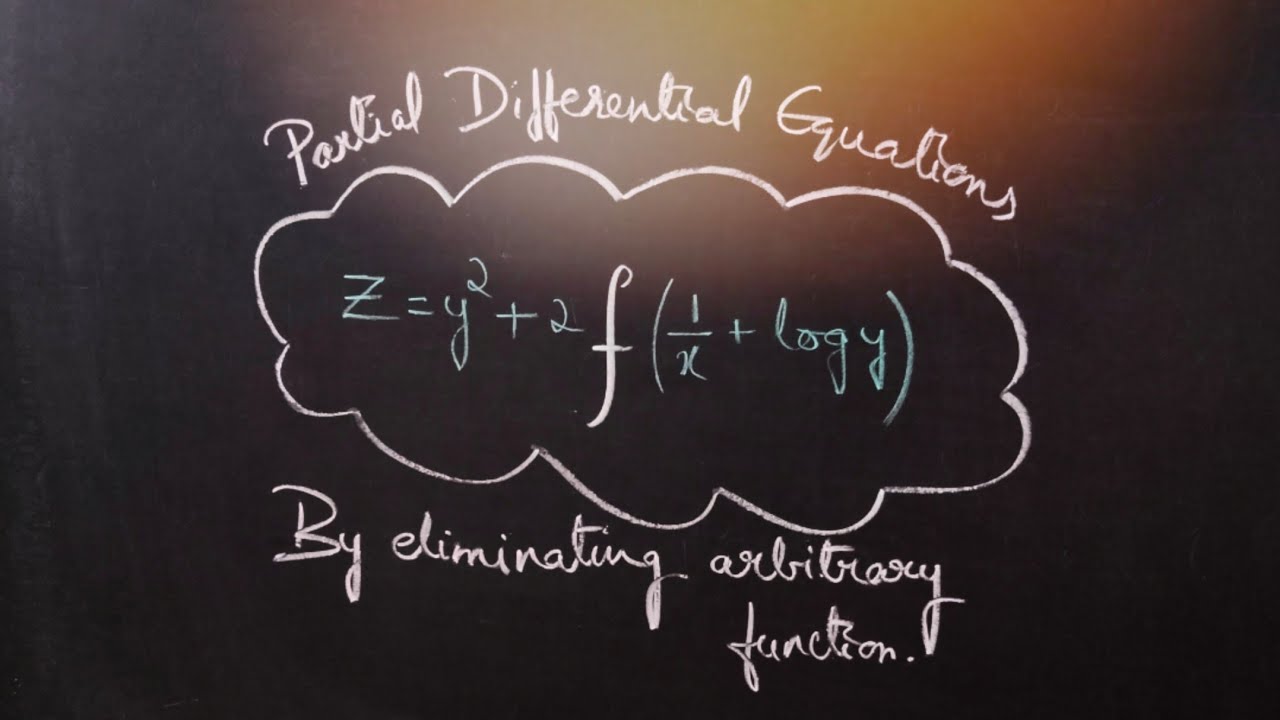 Partial Differential Equations
Z = y² + 2 f (1/x + log y)
By eliminating arbitrary
function.